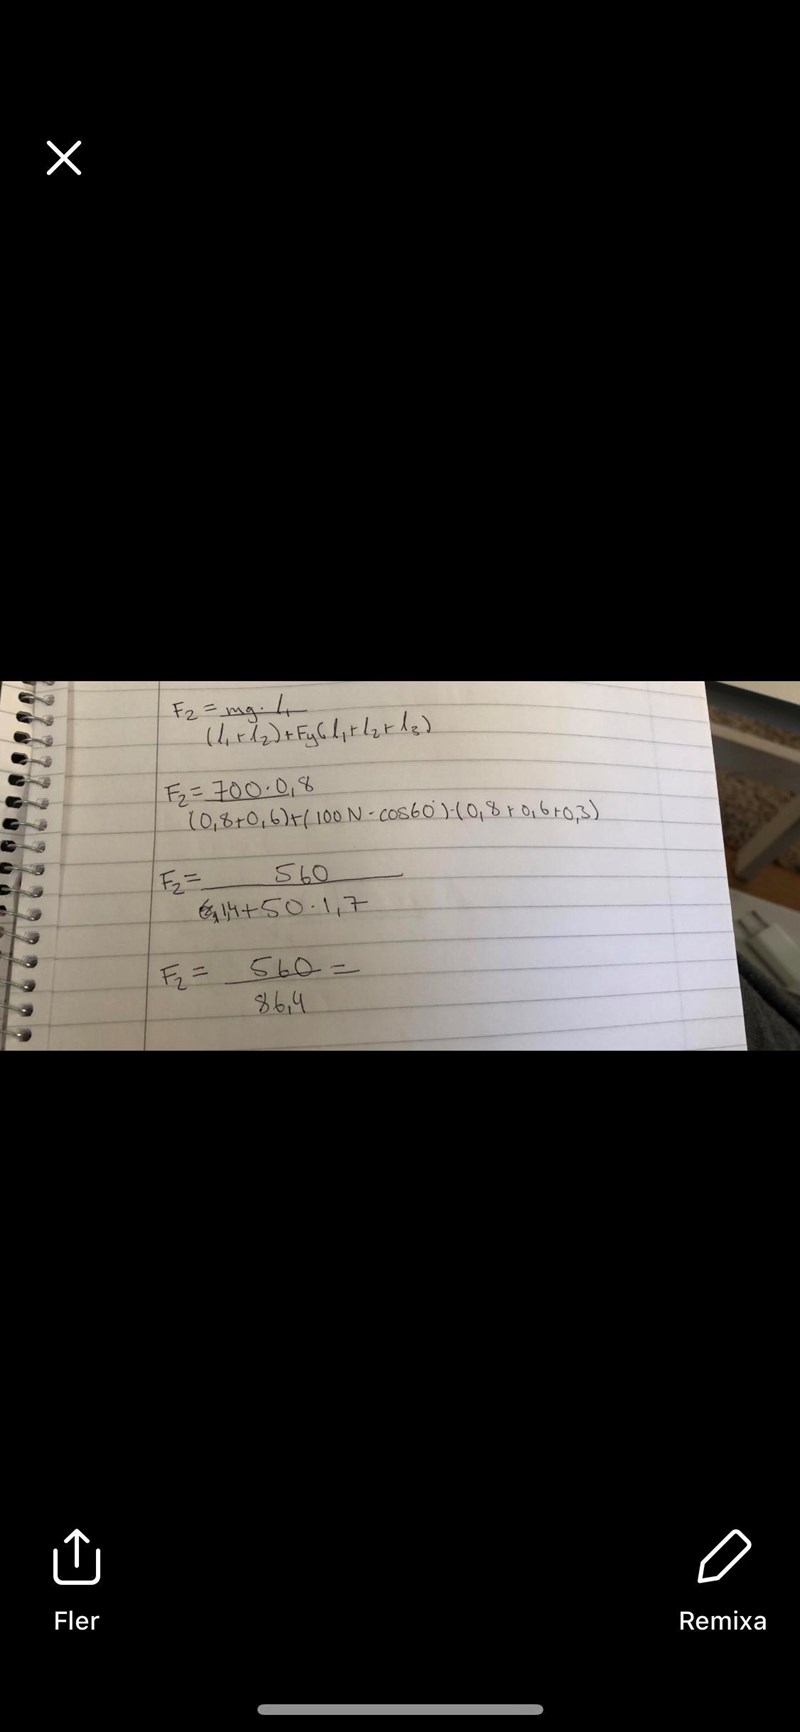 F₂ = mg · l₁
(l₁+l₂)+Fy(l₁+l₂+l₃)
F₂ = 700·0,8
(0,8+0,6)+(100N·cos60°)·(0,8+0,6+0,3)
F₂ = 560
1,4+50·1,7
F₂ = 560 =
86,4
Fler
Remixa